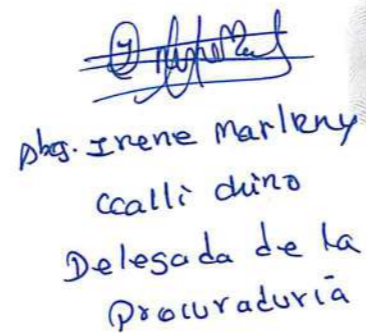 Abg. Irene Marleny
Ccalli Chino
Delegada de la
Procuraduría